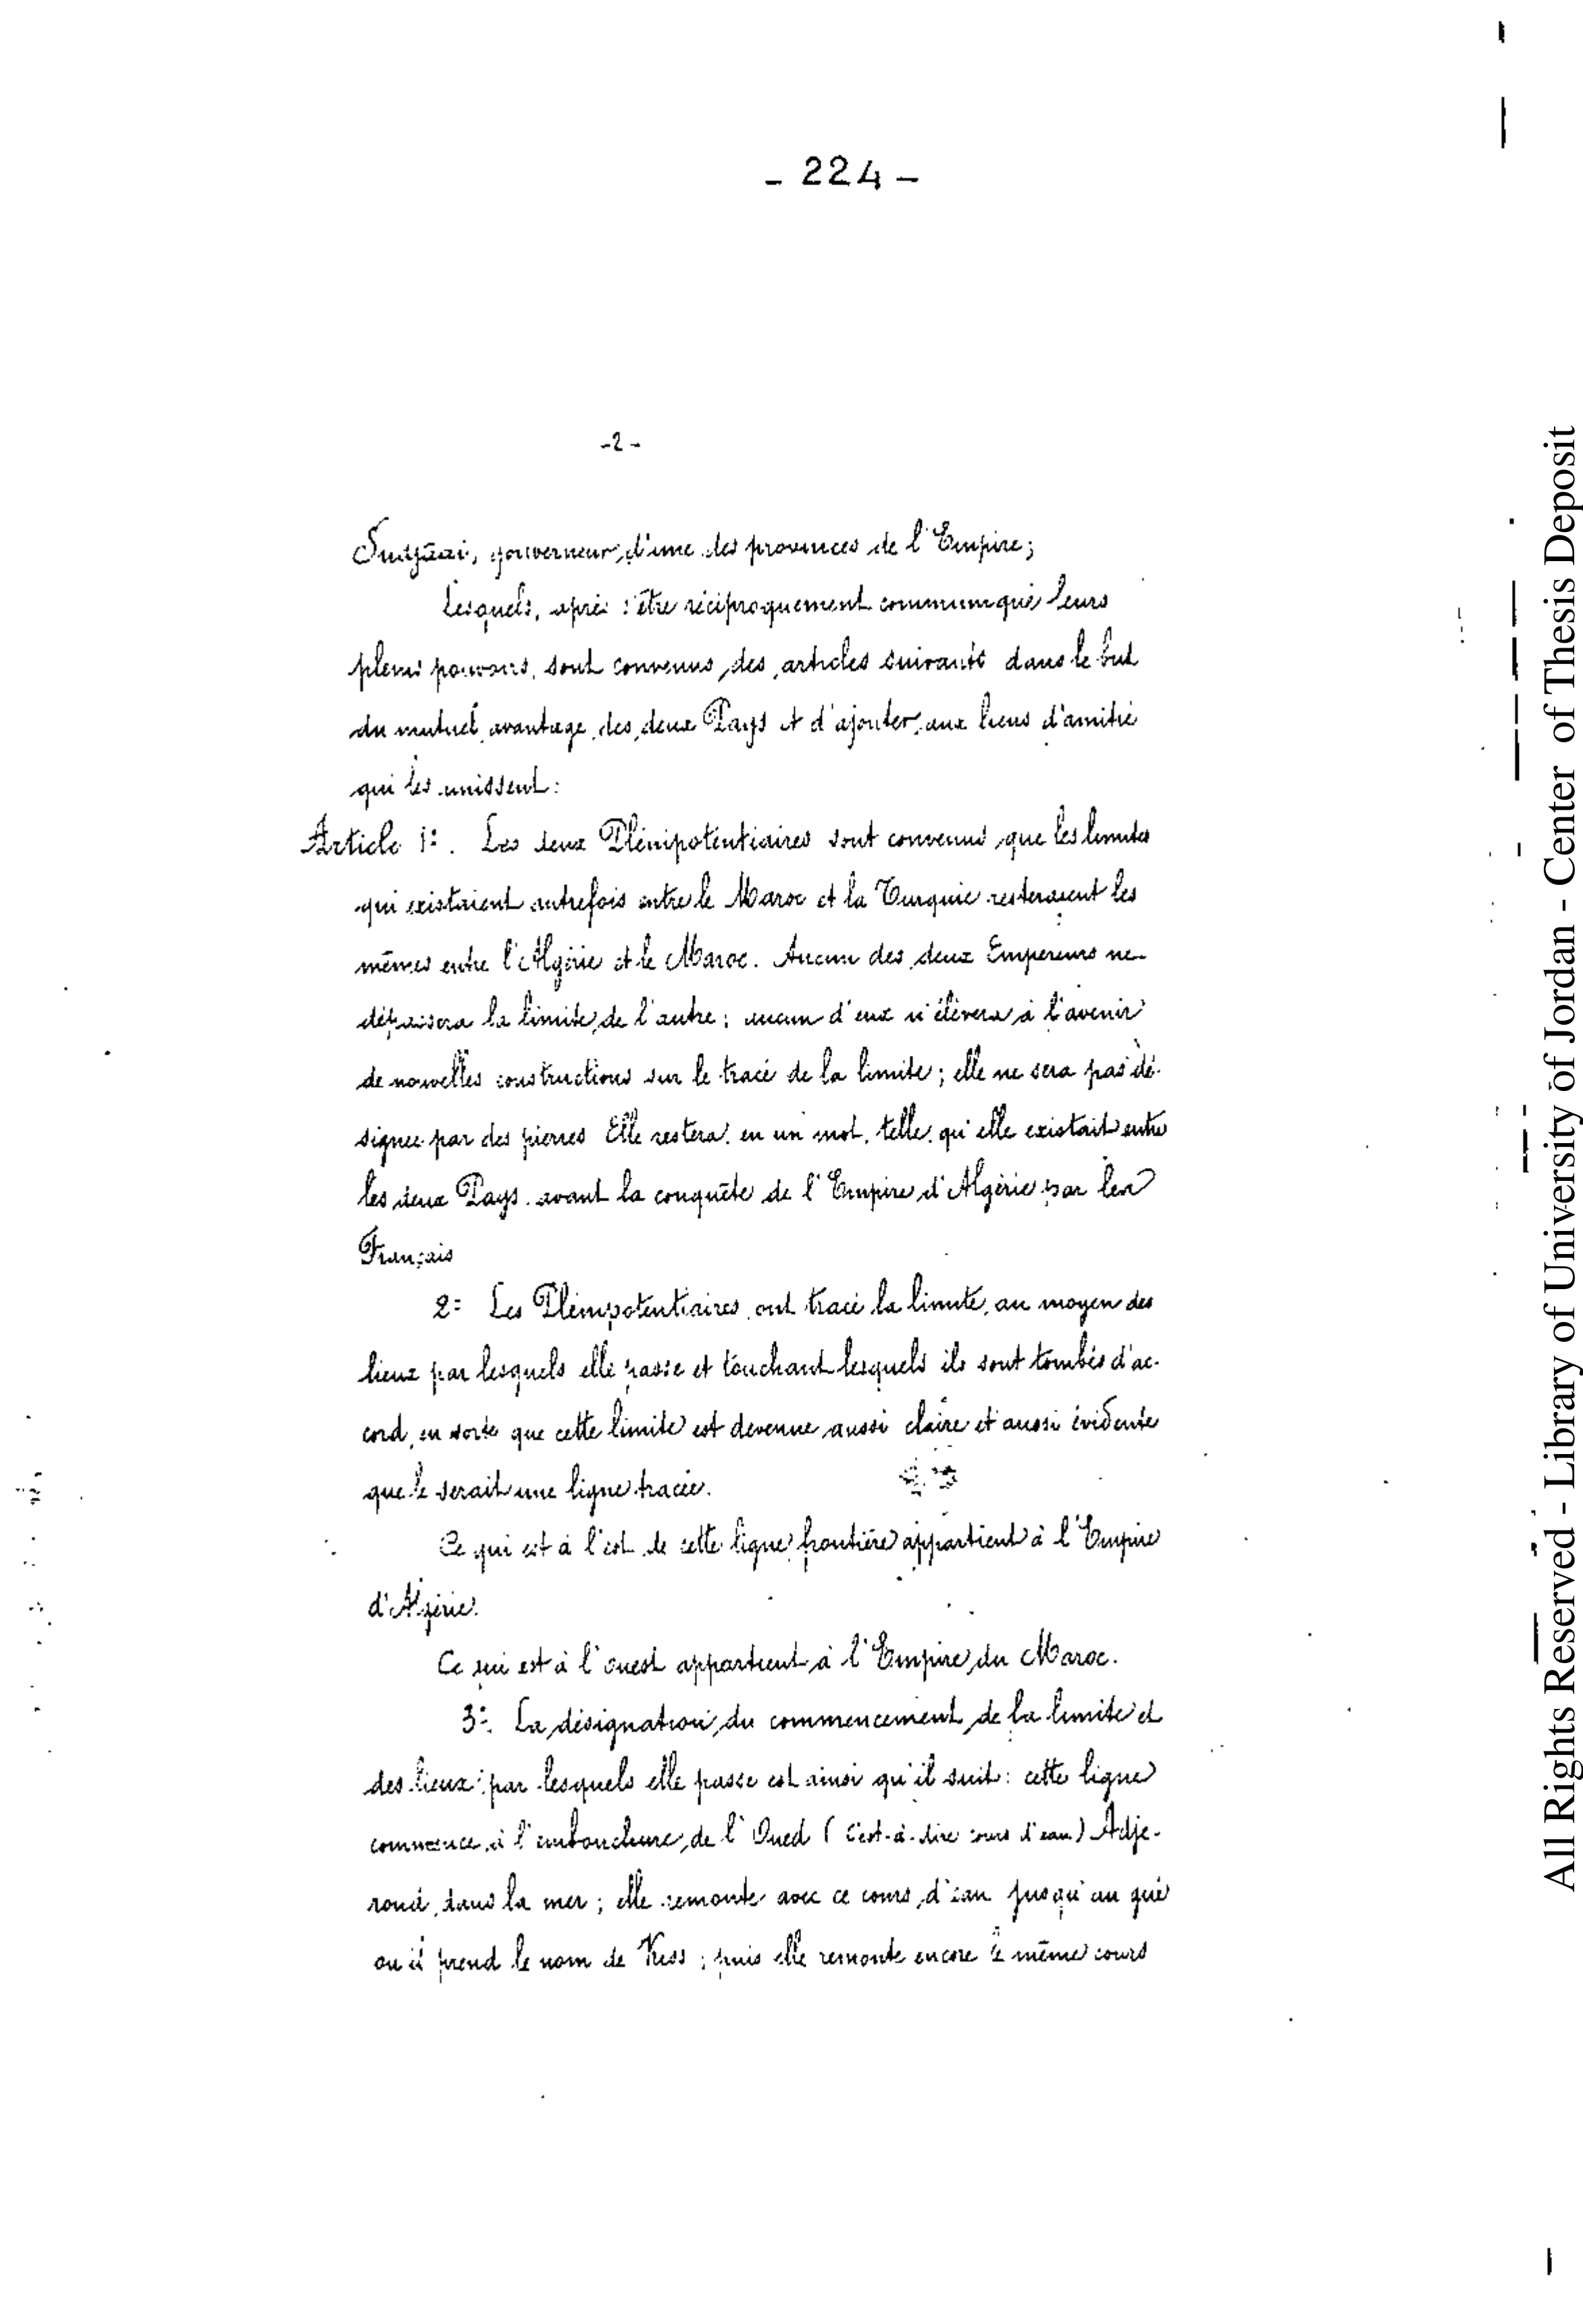 - 224 -
- 2 -
gouverneur d'une des provinces de l'Empire;
Lesquels, après s'être réciproquement communiqué leurs
pleins pouvoirs, sont convenus des articles suivants dans le but
du mutuel avantage des deux Pays et d'ajouter aux liens d'amitié
qui les unissent:
Article 1º. Les deux Plénipotentiaires sont convenus que les limites
qui existaient autrefois entre le Maroc et la Turquie resteraient les
mêmes entre l'Algérie et le Maroc. Aucun des deux Empereurs ne
dépassera la limite de l'autre; aucun d'eux n'élèvera à l'avenir
de nouvelles constructions sur le tracé de la limite; elle ne sera pas dé-
signée par des pierres Elle restera, en un mot, telle qu'elle existait entre
les deux Pays avant la conquête de l'Empire d'Algérie par les
Français
2º Les Plénipotentiaires ont tracé la limite au moyen des
lieux par lesquels elle passe et touchant lesquels ils sont tombés d'ac-
cord, en sorte que cette limite est devenue aussi claire et aussi évidente
que le serait une ligne tracée.
Ce qui est à l'est de cette ligne frontière appartient à l'Empire
d'Algérie.
Ce qui est à l'ouest appartient à l'Empire du Maroc.
3º. La désignation du commencement de la limite et
des lieux par lesquels elle passe est ainsi qu'il suit: cette ligne
commence à l'embouchure de l'Oued (c'est-à-dire cours d'eau) Adje-
roud dans la mer; elle remonte avec ce cours d'eau jusqu'au gué
où il prend le nom de Kiss; puis elle remonte encore le même cours
All Rights Reserved - Library of University of Jordan - Center of Thesis Deposit